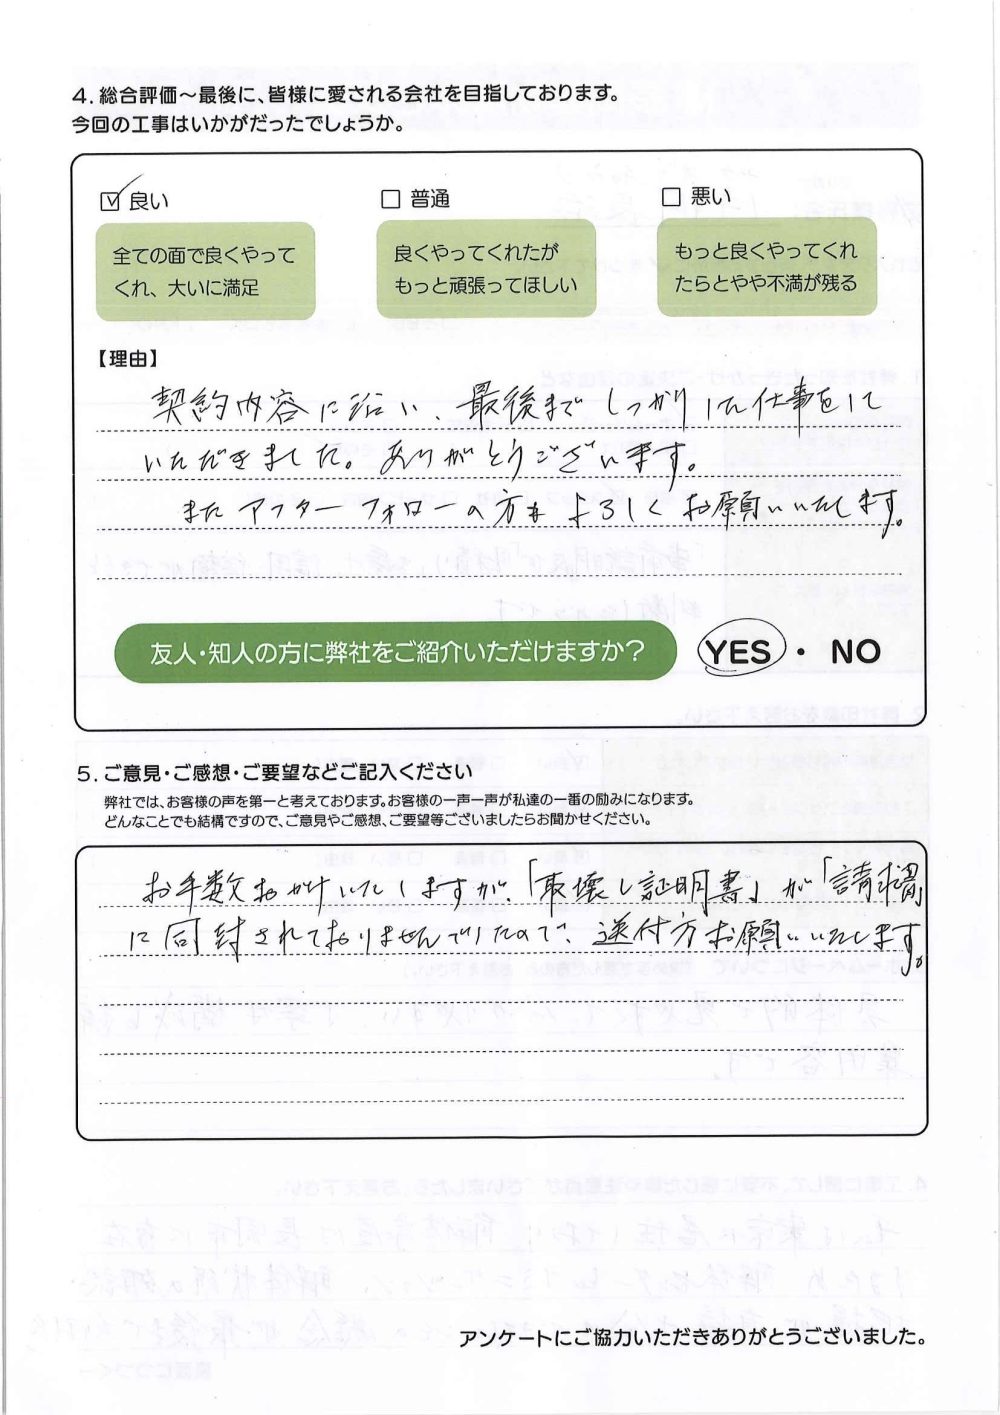 4. 総合評価～最後に、皆様に愛される会社を目指しております。
今回の工事はいかがだったでしょうか。
良い
普通
悪い
全ての面で良くやって
くれ、大いに満足
良くやってくれたが
もっと頑張ってほしい
もっと良くやってくれ
たらとやや不満が残る
【理由】
契約内容に沿い、最後までしっかりした仕事をして
いただきました。ありがとうございます。
またアフターフォローの方もよろしくお願いいたします。
友人・知人の方に弊社をご紹介いただけますか?
YES・NO
5. ご意見・ご感想・ご要望などご記入ください
弊社では、お客様の声を第一と考えております。お客様の一声一声が私達の一番の励みになります。
どんなことでも結構ですので、ご意見やご感想、ご要望等ございましたらお聞かせください。
お手数おかけいたしますが、「取壊し証明書」が「請求書」
に同封されておりませんでしたので、送付方お願いいたします。
アンケートにご協力いただきありがとうございました。